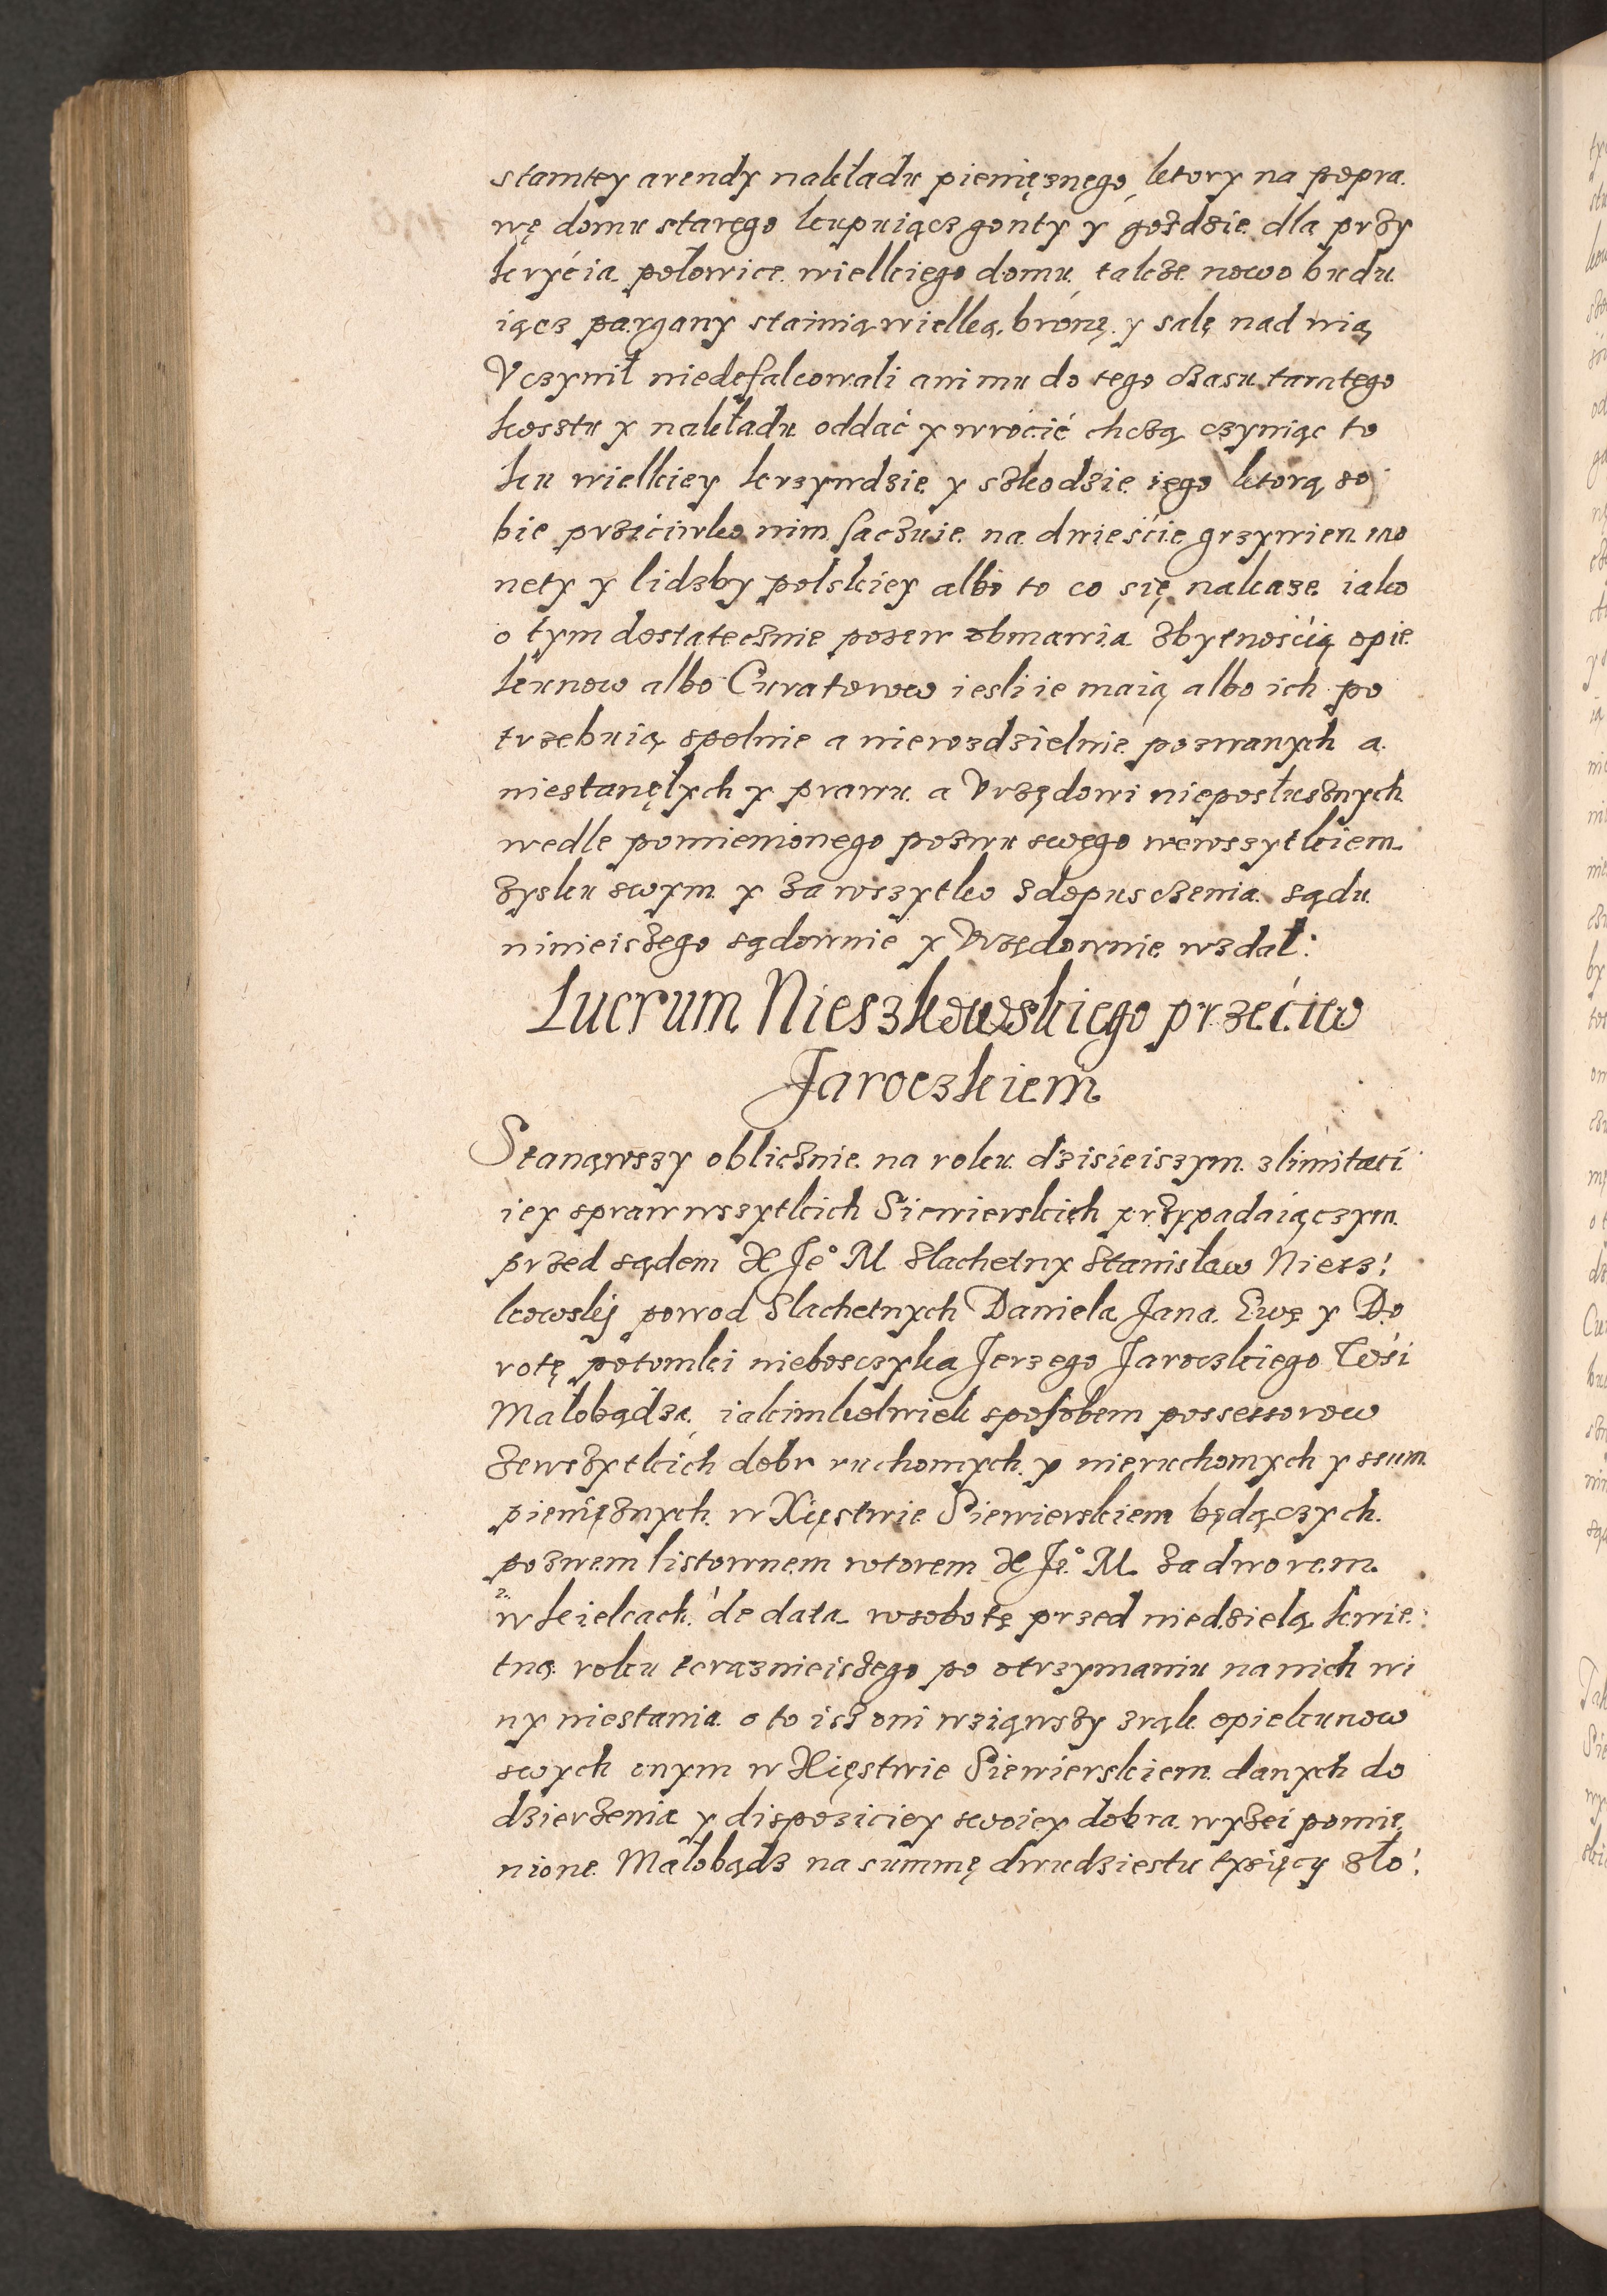 stamtey arendy nakładu pieniężnego ktory na popra
wę domu starego kupuiącz gonty y gożdzie dla przy
krycia połowice wielkiego domu także nowo budu
iącz pargany stainią wielką bronę y salę nad nią
Uczynił niedefalcowali ani mu do tego czasu tamtego
kosztu y nakładu oddać y wrocić chczą czyniąc to
ku wielkiey krzywdzie y szkodzie iego ktorą so
bie przeciwko nim saczuie na dwieście grzywien mo
nety y lidzby polskiey albo to co się nakaże iako
o tym dostatecznie pozew obmawia zbytnością opie
kunow albo Curatorow iesli ie maią albo ich po
trzebuią spolnie a nierozdzielnie pozwanych a
niestanęłych y prawu a Urzędowi nieposłusznych
wedle pomienionego pozwu swego wewszytkiem
zysku swym y za wszytko zdopuszczenia sądu
ninieiszego sądownie y Urzędownie wzdał:
Lucrum Nieszkowskiego przeciw
Jaroczkiem
Stanąwszy oblicznie na roku dzisieiszym z limitati
iey spraw wszytkich Siewierskich przypadaiączym
przed sądem X Je° M Slachetny Stanisław Niesz:
kowskij powod Slachetnych Daniela Jana Ewę y Do
rotę potomki niebosczyka Jerzego Jaroczkiego Wsi
Małobądza iakimkolwiek sposobem possessorow
zewszytkich dobr ruchomych y nieruchomych y sum
pieniężnych w Xięstwie Siewierskiem będączych
pozwem listownem wtorem X Je° M zadworem
w Kielcach de data w sobotę przed niedzielą kwie
tną roku terazniejszego po otrzymaniu na nich wi
ny niestania o to isz oni wziąwszy z rąk opiekunow
swych onym w Xięstwie Siewierskiem danych do
dzierżenia y dispozitiey swoiey dobra wyżei pomie
nione Małobądz na summę dwudziestu tysięcy zło: